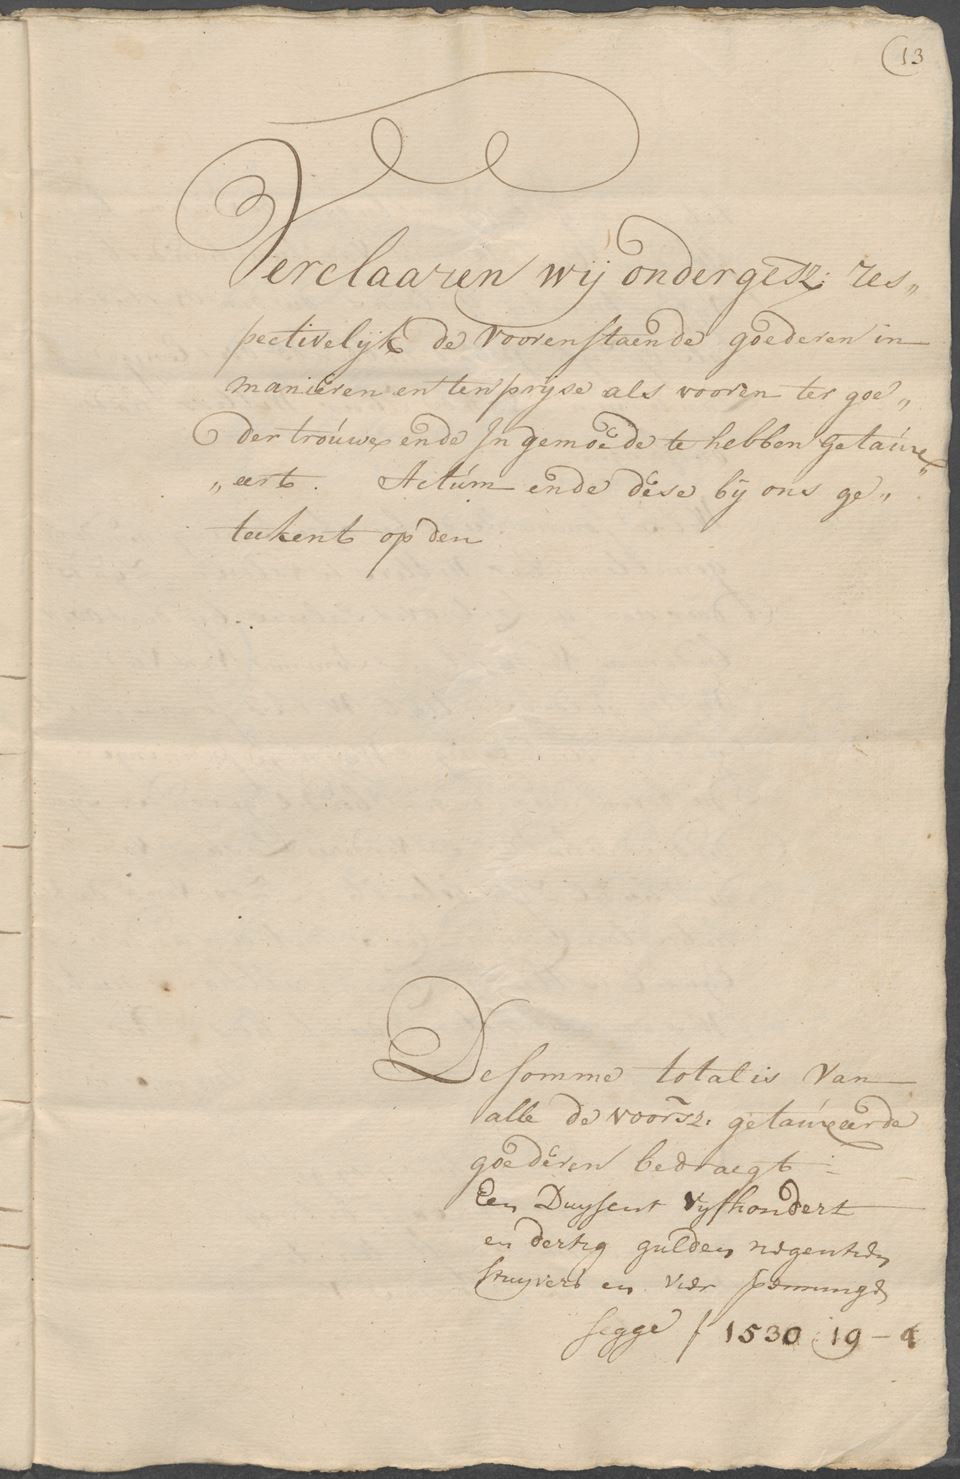 13
Verclaaren wij ondergesz: res„
pectivelijk de voorenstaende goederen in
maniéren en ten prijse als vooren ter goe„
der trouwe, ende in gemoede te hebben getauxe„
„eert. Actúm ende dése bij ons ge„
teekent op den
De somme totalis van
alle de voorsz: getauxeerde
goederen bedraegt
Een Duysent Vijfhondert
en dertig gulden negentien
stuyvers en vier penninge
segge f 1530 : 19 - 4